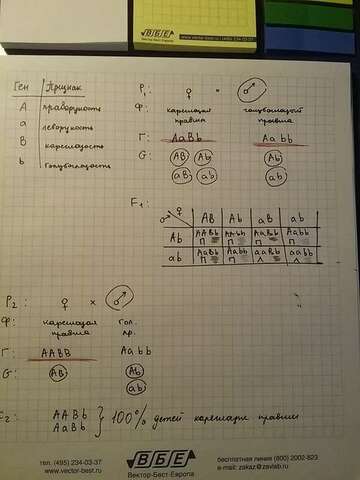 ВБЕ
Вектор-Бест-Европа
www.vector-best.ru
тел. (495) 234-03-37
Ген Признак
А праворукость
а леворукость
В кареглазость
b голубоглазость
P₁: ♀ × ♂
Ф: кареглазая голубоглазый
правша правша
Г: AaBb Aabb
G: AB Ab Ab
aB ab ab
F₁:
♂ ♀ AB Ab aB ab
Ab AABb AAbb AaBb Aabb
П П П П
ab AaBb Aabb aaBb aabb
П П Л Л
P₂: ♀ × ♂
Ф: кареглазая гол.
правша пр.
Г: AABB Aabb
G: AB Ab
ab
F₂: AABb
AaBb } 100% детей кареглазы правши
ВБЕ
Вектор-Бест-Европа
тел. (495) 234-03-37
www.vector-best.ru
бесплатная линия (800) 2002-823
e-mail: zakaz@zavlab.ru